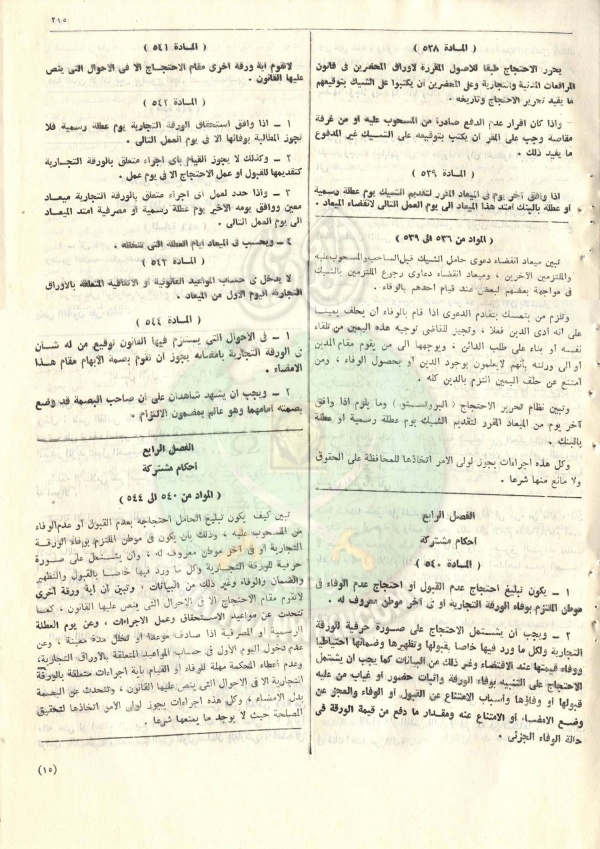 ٢١٥
( المادة ٥٣٨ )
يحرر الاحتجاج طبقا للاصول المقررة لاوراق المحضرين في قانون
المرافعات المدنية والتجارية وعلى المحضرين أن يكتبوا على الشيك بتوقيعهم
ما يفيد تحرير الاحتجاج وتاريخه .
واذا كان اقرار عدم الدفع صادرة من المسحوب عليه أو من غرفة
مقاصة وجب على المقر أن يكتب بتوقيعه على الشيك غير المدفوع
ما يفيد ذلك .
( المادة ٥٣٩ )
اذا وافق آخر يوم في الميعاد المقرر لتقديم الشيك يوم عطلة رسمية
أو عطلة بالبنك امتد هذا الميعاد الى يوم العمل التالى لانقضاء الميعاد .
( المواد من ٥٣٦ الى ٥٣٩ )
تبين ميعاد انقضاء دعوى حامل الشيك قبل الساحب والمسحوب عليه
والملتزمين الآخرين ، وميعاد انقضاء دعاوى رجوع الملتزمين بالشيك
في مواجهة بعضهم لبعض عند قيام احدهم بالوفاء .
وتلزم من يتمسك بتقادم الدعوى اذا قام بالوفاء أن يحلف يمينا
على أنه أدى الدين فعلا ، وتجيز للقاضي توجيه هذه اليمين من تلقاء
نفسه أو بناء على طلب الدائن ، ويوجهها الى من يقوم مقام المدين
أو الى ورثته بأنهم لايعلمون بوجود الدين أو بحصول الوفاء ، ومن
امتنع عن حلف اليمين التزم بالدين كله .
وتبين نظام تحرير الاحتجاج ( البروتستو ) وما يلزم اذا وافق
آخر يوم من الميعاد المقرر لتقديم الشيك يوم عطلة رسمية أو عطلة
بالبنك .
وكل هذه اجراءات يجوز لولى الامر اتخاذها للمحافظة على الحقوق
ولا مانع منها شرعا .
الفصل الرابع
احكام مشتركة
( المادة ٥٤٠ )
١ ـ يكون تبليغ احتجاج عدم القبول أو احتجاج عدم الوفاء في
موطن الملتزم بوفاء الورقة التجارية أو في آخر موطن معروف له .
٢ ـ ويجب أن يشتمل الاحتجاج على صورة حرفية للورقة
التجارية ولكل ما ورد فيها خاصا بقبولها وتظهيرها وضمانها احتياطيا
ووفاء قيمتها عند الاقتضاء وغير ذلك من البيانات كما يجب أن يشتمل
الاحتجاج على التنبيه بوفاء الورقة واثبات حضور أو غياب من عليه
قبولها أو وفاؤها وأسباب الامتناع عن القبول أو الوفاء والعجز عن
وضع الامضاء أو الامتناع عنه ومقدار ما دفع من قيمة الورقة في
حالة الوفاء الجزئى .
( المادة ٥٤١ )
لاتقوم أية ورقة أخرى مقام الاحتجاج الا في الاحوال التى ينص
عليها القانون .
( المادة ٥٤٢ )
١ ـ اذا وافق استحقاق الورقة التجارية يوم عطلة رسمية فلا
تجوز المطالبة بوفائها الا في يوم العمل التالى .
٢ ـ وكذلك لا يجوز القيام بأى اجراء متعلق بالورقة التجارية
كتقديمها للقبول أو عمل الاحتجاج الا في يوم عمل .
٣ ـ واذا حدد لعمل أى اجراء متعلق بالورقة التجارية ميعاد
معين ووافق يومه الاخير يوم عطلة رسمية أو مصرفية امتد الميعاد
الى يوم العمل التالى .
٤ ـ ويحسب في الميعاد أيام العطلة التى تتخلله .
( المادة ٥٤٣ )
لا يدخل في حساب المواعيد القانونية أو الاتفاقية المتعلقة بالأوراق
التجارية اليوم الاول من الميعاد .
( المادة ٥٤٤ )
١ ـ في الأحوال التى يستلزم فيها القانون توقيع من له شأن
في الورقة التجارية بامضائه يجوز أن تقوم بصمة الابهام مقام هذا
الامضاء .
٢ ـ ويجب أن يشهد شاهدان على أن صاحب البصمة قد وضع
بصمته أمامهما وهو عالم بمضمون الالتزام .
الفصل الرابع
احكام مشتركة
( المواد من ٥٤٠ الى ٥٤٤ )
تبين كيف يكون تبليغ الحامل احتجاجه بعدم القبول أو عدم الوفاء
من المسحوب عليه ، وذلك بأن يكون في موطن الملتزم بوفاء الورقة
التجارية أو في آخر موطن معروف له ، وأن يشتمل على صورة
حرفية للورقة التجارية وكل ما ورد فيها خاصا بالقبول والتظهير
والضمان والوفاء وغير ذلك من البيانات ، وتبين أن أية ورقة أخرى
لاتقوم مقام الاحتجاج الا في الاحوال التى ينص عليها القانون ، كما
تتحدث عن مواعيد الاستحقاق وعمل الاجراءات ، وعن يوم العطلة
الرسمية أو المصرفية اذا صادف موعدا أو تخلل مدة معينة ، وعن
عدم دخول اليوم الأول في حساب المواعيد المتعلقة بالأوراق التجارية،
وعدم اعطاء المحكمة مهلة للوفاء أو القيام بأية اجراءات متعلقة بالورقة
التجارية الا في الاحوال التى ينص عليها القانون ، وتتحدث عن البصمة
بدل الامضاء ، وكل هذه اجراءات يجوز لولى الأمر اتخاذها لتحقيق
المصلحة حيث لا يوجد ما يمنعها شرعا .
(١٥)